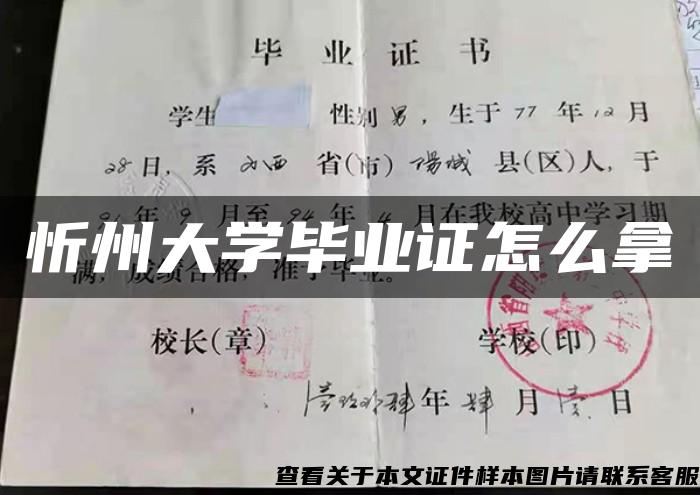 毕业证书
学生 性别男，生于77年12月
28日，系山西省(市)阳城县(区)人，于
91年9月至94年4月在我校高中学习期
忻州大学毕业证怎么拿
满，成绩合格，准予毕业。
校长(章) 学校(印)
年肆月壹日
查看关于本文证件样本图片请联系客服